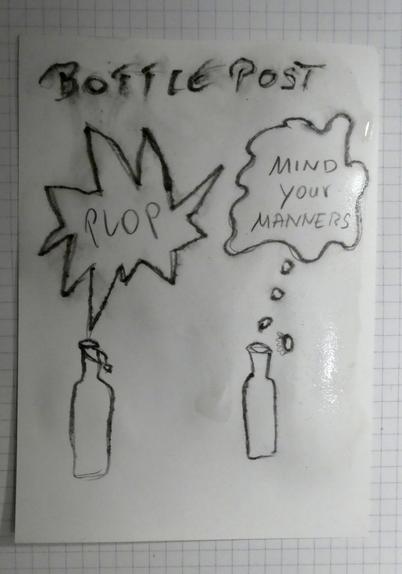 BOTTLE POST
PLOP
MIND
your
MANNERS